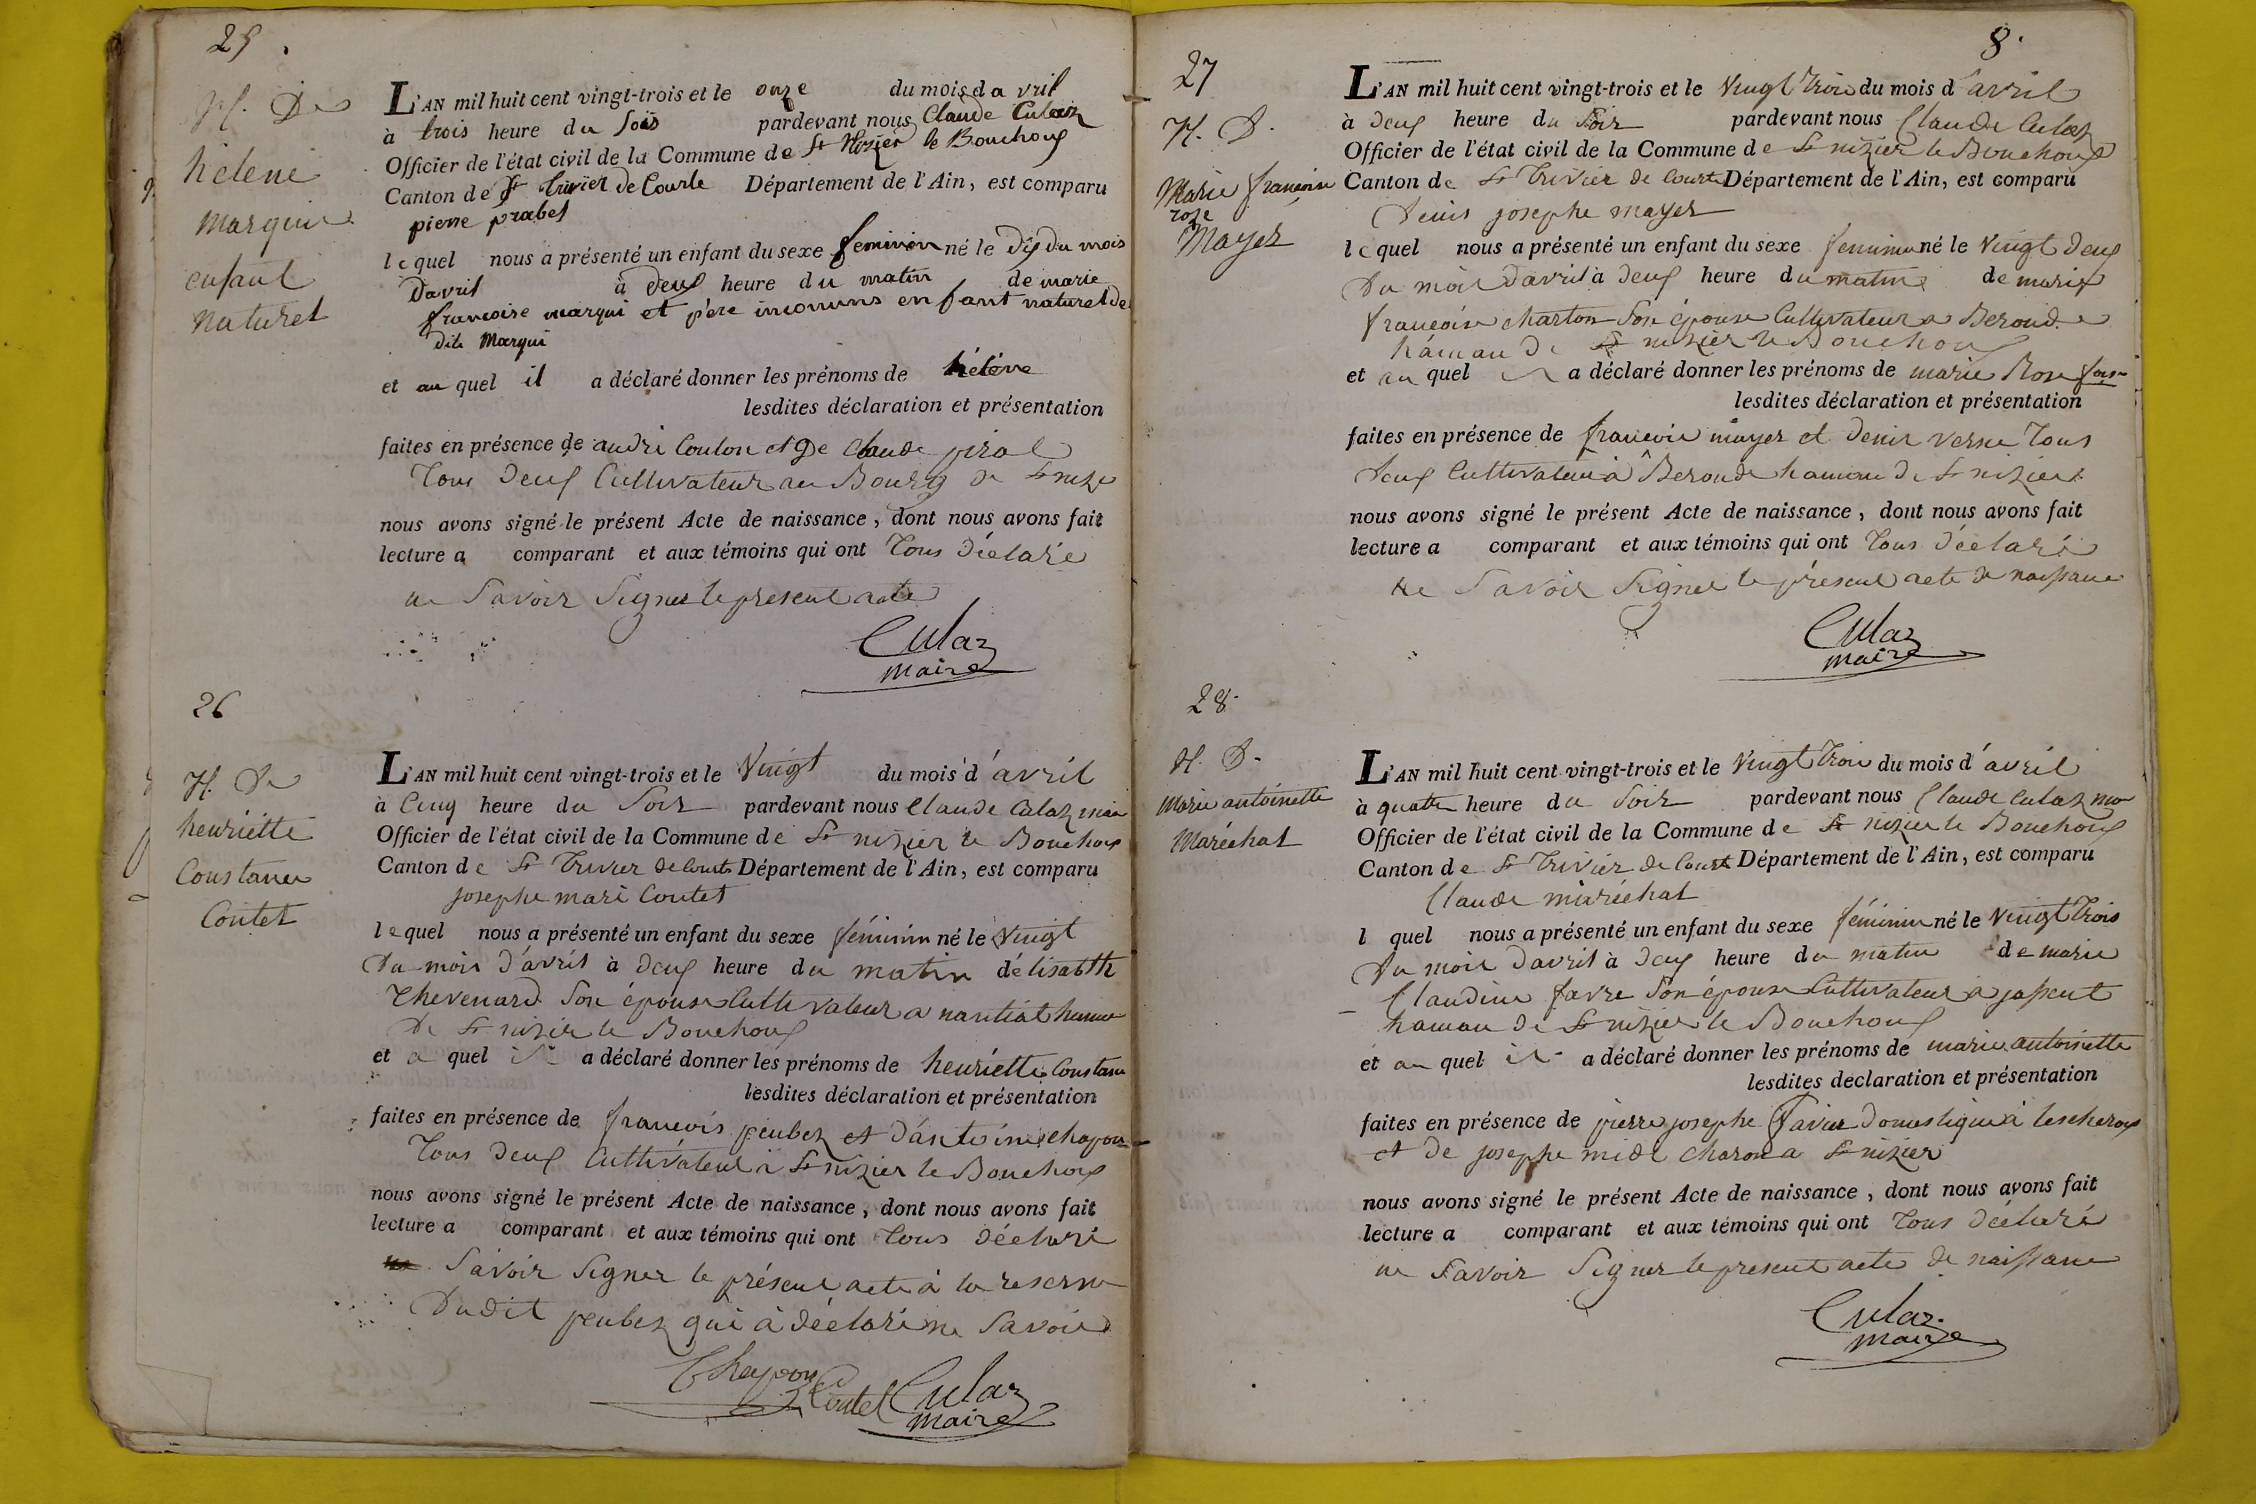 25
N. De
hélene
marquis
enfant
naturel
L'AN mil huit cent vingt-trois et le onze du mois d avril
à trois heure du Soir pardevant nous Claude Culaz
Officier de l'état civil de la Commune de St Nizier le Bouchoux
Canton de St Trivier de Courte Département de l'Ain, est comparu
pierre prabel
lequel nous a présenté un enfant du sexe feminin né le Dix du mois
Davril à deux heure du matin de marie
francoise marqui et père inconnuns enfant naturel de
dite Marqui
et au quel il a déclaré donner les prénoms de hélène
lesdites déclaration et présentation
faites en présence de andré Coulon et De Claude piral
Tous Deux Cultivateur au Bourg de St nizier
nous avons signé le présent Acte de naissance, dont nous avons fait
lecture a comparant et aux témoins qui ont Tous Déclaré
ne Savoir Signer le present acte
Culaz
maire
26
N. De
henriette
Constance
Coutet
L'AN mil huit cent vingt-trois et le Vingt du mois d'avril
à Cinq heure du Soir pardevant nous Claude Culaz maire
Officier de l'état civil de la Commune de St nizier le Bouchoux
Canton de St Trivier de Courte Département de l'Ain, est comparu
josephe mari Coutet
lequel nous a présenté un enfant du sexe féminin né le Vingt
Du mois d'avril à deux heure du matin délisabth
Thevenard Son épouse Cultivateur a nantiat hamau
De St nizier le Bouchoux
et a quel il a déclaré donner les prénoms de henriétte Constance
lesdites déclaration et présentation
faites en présence de francois peubez et d'antoine chapon
Tous Deux Cultivateur à St nizier le Bouchoux
nous avons signé le présent Acte de naissance, dont nous avons fait
lecture a comparant et aux témoins qui ont Tous déclaré
Savoir Signer le présent acte à la reserve
Dudit peubez qui à déclaré ne Savoir
Chapon Coutet Culaz
maire
8.
27
N. D.
Marie francoise
roze
Mayer
L'AN mil huit cent vingt-trois et le Vingt Trois du mois d'avril
à deux heure du Soir pardevant nous Claude Culaz
Officier de l'état civil de la Commune de St nizier le Bouchoux
Canton de St Trivier de Courte Département de l'Ain, est comparu
Denis josephe mayer
lequel nous a présenté un enfant du sexe feminin né le Vingt Deux
Du mois Davril à deux heure du matin de marie
francoise charton Son épouse Cultivateur a Beroude
hámau De St nizier le Bouchoux
et au quel il a déclaré donner les prénoms de marie Rose
lesdites déclaration et présentation
faites en présence de francois mayer et Denis verne Tous
Deux Cultivateur à Beroude hamau De St nizier
nous avons signé le présent Acte de naissance, dont nous avons fait
lecture a comparant et aux témoins qui ont Tous Déclaré
ne Savoir Signer le présent acte de naissance
Culaz
maire
28.
N. D.
Marie antoinette
Maréchal
L'AN mil huit cent vingt-trois et le Vingt Trois du mois d'avril
à quatre heure du Soir pardevant nous Claude Culaz
Officier de l'état civil de la Commune de St nizier le Bouchoux
Canton de St Trivier de Courte Département de l'Ain, est comparu
Claude maréchal
l quel nous a présenté un enfant du sexe féminin né le Vingt Trois
Du mois Davril à deux heure du matin de marie
Claudine favre Son épouse Cultivateur a
hamau de St nizier le Bouchoux
et au quel il a déclaré donner les prénoms de marie antoinette
lesdites declaration et présentation
faites en présence de pierre josephe favier Domestique à Lescheroux
et De josephe midi charon a St nizier
nous avons signé le présent Acte de naissance, dont nous avons fait
lecture a comparant et aux témoins qui ont Tous Déclaré
ne Savoir Signer le present acte de naissance
Culaz
maire